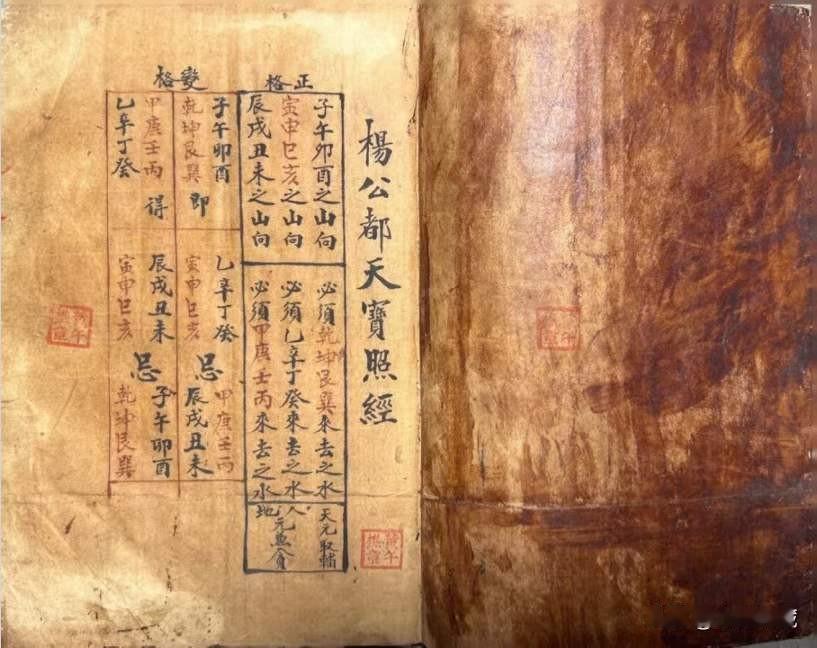 楊公都天寶照經
正格
子午卯酉之山向
寅申巳亥之山向
辰戌丑未之山向
必須乾坤艮巽來去之水
必須乙辛丁癸來去之水
必須甲庚壬丙來去之水
天元取輔
人地元兼貪
變格
子午卯酉
乾坤艮巽
即
乙辛丁癸
寅申巳亥
忌
甲庚壬丙
辰戌丑未
甲庚壬丙
乙辛丁癸
得
辰戌丑未
寅申巳亥
忌
子午卯酉
乾坤艮巽